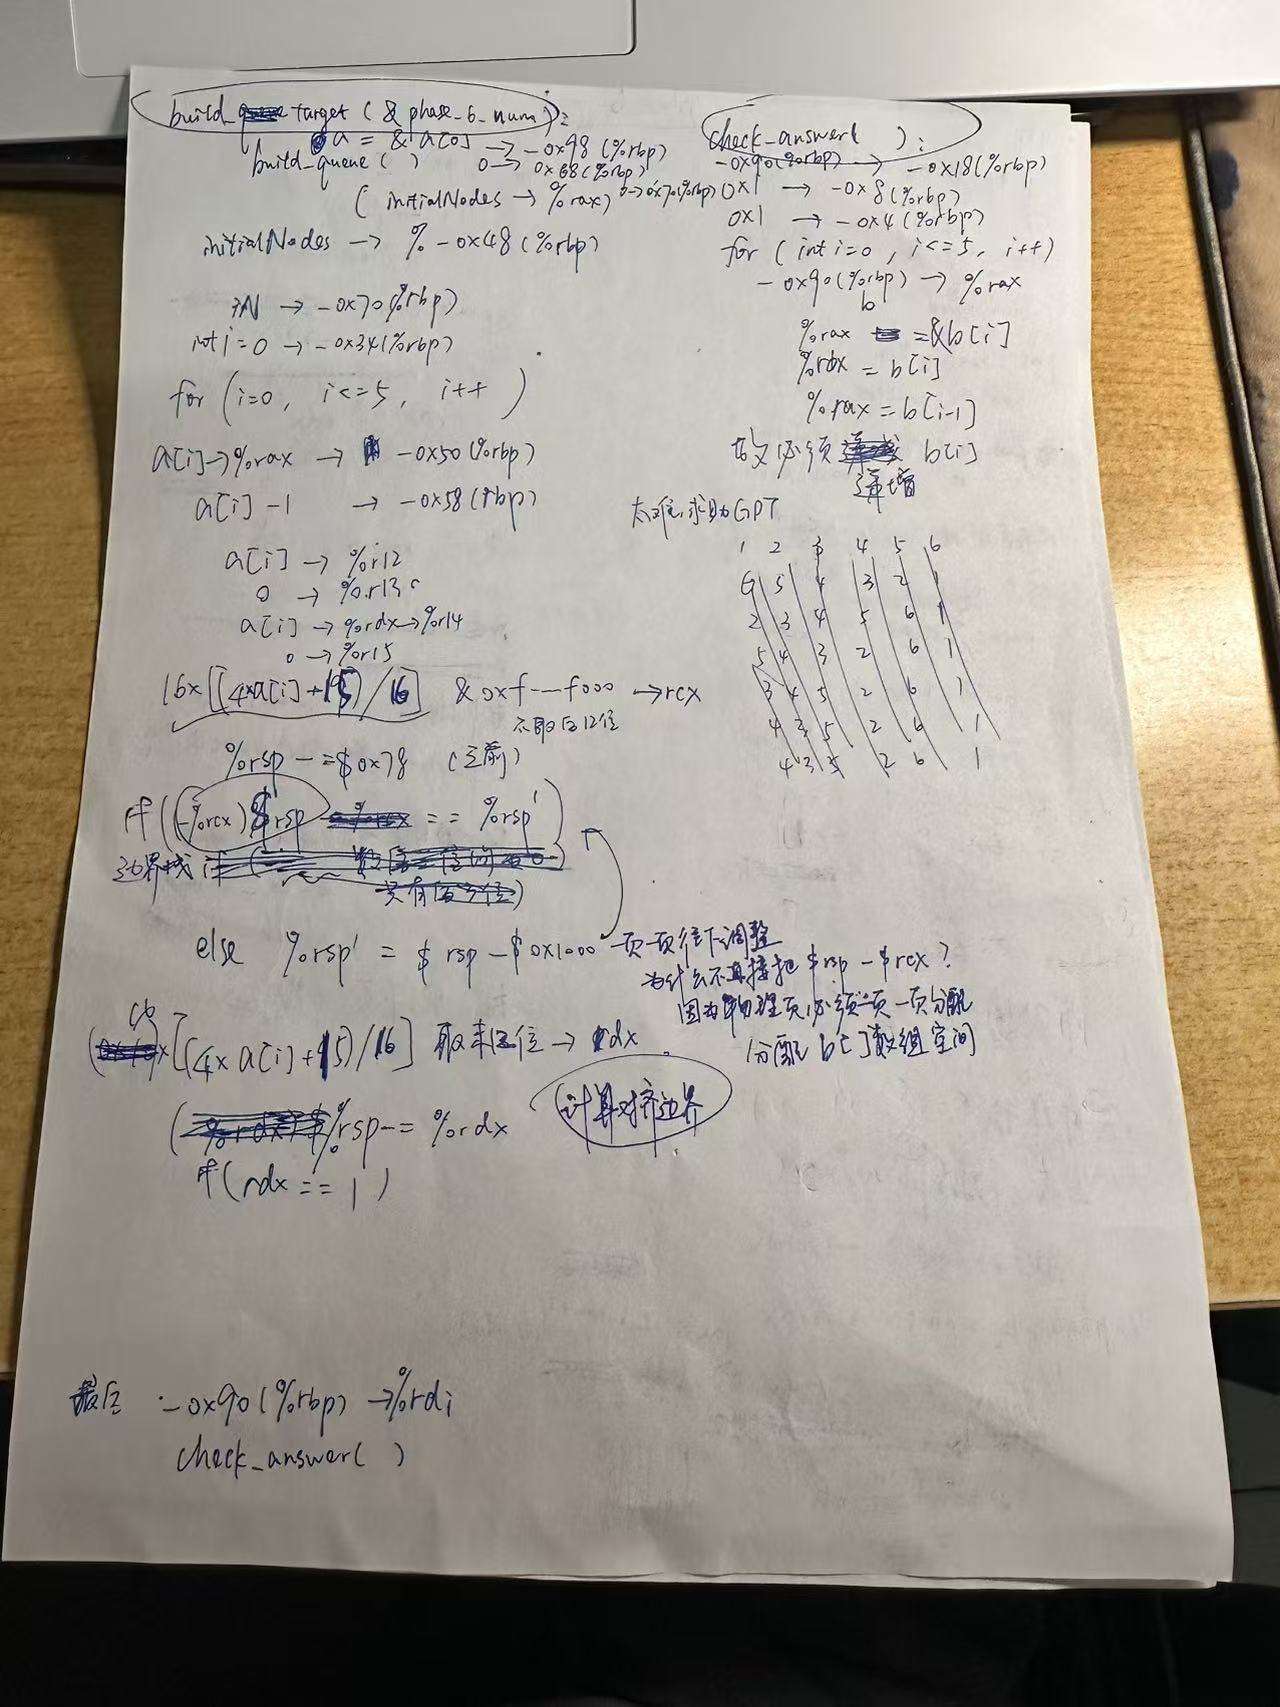 build_target ( & phase_6_num ):
a = & a[0] → -0x98 (%rbp)
build_queue ( ) 0 → 0x68 (%rbp)
( initialNodes → %rax) 0→0x70(%rbp)
initialNodes → % -0x48 (%rbp)
→ -0x70 (%rbp)
int i=0 → -0x34 (%rbp)
for (i=0, i<=5, i++ )
a[i]→%rax → -0x50 (%rbp)
a[i]-1 → -0x58 (rbp)
a[i] → %r12
0 → %r13
a[i] → %rdx→%r14
0 → %r15
16x[(4xa[i]+15)/16] & 0xf---f000 →rcx
不取后12位
%rsp -=$0x78 (之前)
if ((-%rcx) $rsp == %rsp')
边界栈
else %rsp' = $ rsp - $0x1000 一页一页往下调整
为什么不直接把 $rsp - $rcx ?
因为物理页必须一页一页分配
[(4x a[i]+15)/16] 取末12位 → rdx
分配 b[]数组空间
%rsp-= %rdx
计算对齐边界
if (rdx == 1 )
最后 -0x90 (%rbp) →%rdi
check_answer( )
check_answer( ):
-0x90(%rbp) → -0x18(%rbp)
0x1 → -0x8(%rbp)
0x1 → -0x4(%rbp)
for ( int i=0, i<=5, i++)
-0x90(%rbp) → %rax
b
%rax =&b[i]
%rdx = b[i]
%rax = b[i-1]
故必须 b[i]
递增
太难,求助GPT
1 2 3 4 5 6
6 5 4 3 2 1
2 3 4 5 6 1
5 4 3 2 6 1
3 4 5 2 6 1
4 3 5 2 6 1
4 3 5 2 6 1